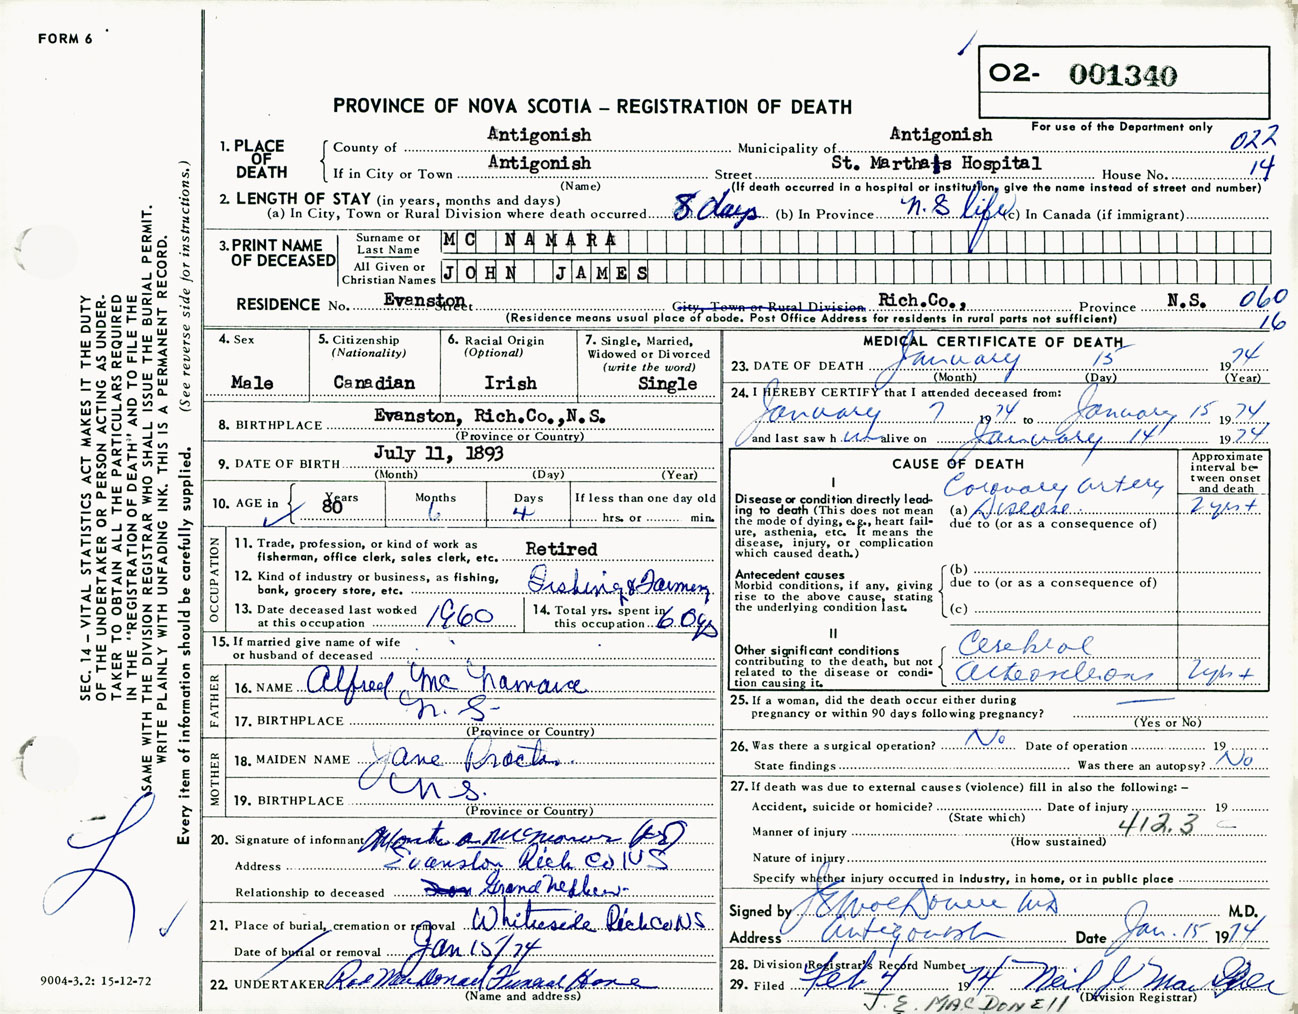 FORM 6
O2- 001340
PROVINCE OF NOVA SCOTIA – REGISTRATION OF DEATH
For use of the Department only
022
14
1. PLACE OF DEATH
County of Antigonish Municipality of Antigonish
If in City or Town Antigonish Street St. Martha's Hospital House No.
(Name) (If death occurred in a hospital or institution, give the name instead of street and number)
2. LENGTH OF STAY (in years, months and days)
(a) In City, Town or Rural Division where death occurred 8 days (b) In Province N.S life (c) In Canada (if immigrant)
3. PRINT NAME OF DECEASED
Surname or Last Name MC NAMARA
All Given or Christian Names JOHN JAMES
RESIDENCE No. Evanston Street City, Town or Rural Division Rich.Co., Province N.S. 060
(Residence means usual place of abode. Post Office Address for residents in rural parts not sufficient) 16
4. Sex
Male
5. Citizenship (Nationality)
Canadian
6. Racial Origin (Optional)
Irish
7. Single, Married, Widowed or Divorced (write the word)
Single
8. BIRTHPLACE Evanston, Rich.Co.,N.S.
(Province or Country)
9. DATE OF BIRTH July 11, 1893
(Month) (Day) (Year)
10. AGE in Years 80 Months 6 Days 4 If less than one day old
hrs. or min.
OCCUPATION
11. Trade, profession, or kind of work as fisherman, office clerk, sales clerk, etc. Retired
12. Kind of industry or business, as fishing, bank, grocery store, etc. Fishing & Farming
13. Date deceased last worked at this occupation 1960
14. Total yrs. spent in this occupation 60 yrs
15. If married give name of wife or husband of deceased
FATHER
16. NAME Alfred Mc Namara
17. BIRTHPLACE N. S.
(Province or Country)
MOTHER
18. MAIDEN NAME Jane Proctor
19. BIRTHPLACE N S.
(Province or Country)
20. Signature of informant
Address Evanston Rich Co NS
Relationship to deceased Son Grand Nephew
21. Place of burial, cremation or removal Whiteside Rich Co NS
Date of burial or removal Jan 15/74
22. UNDERTAKER Rod MacDonald Funeral Home
(Name and address)
MEDICAL CERTIFICATE OF DEATH
23. DATE OF DEATH January 15 1974
(Month) (Day) (Year)
24. I HEREBY CERTIFY that I attended deceased from:
January 7 1974 to January 15 1974
and last saw him alive on January 14 1974
CAUSE OF DEATH
Approximate interval between onset and death
I
Disease or condition directly leading to death (This does not mean the mode of dying, e.g., heart failure, asthenia, etc. It means the disease, injury, or complication which caused death.)
Coronary artery
(a) Disease 2 yrs +
due to (or as a consequence of)
Antecedent causes
Morbid conditions, if any, giving rise to the above cause, stating the underlying condition last.
(b)
due to (or as a consequence of)
(c)
II
Other significant conditions
contributing to the death, but not related to the disease or condition causing it.
Cerebral
Arteriosclerosis 2 yrs +
25. If a woman, did the death occur either during pregnancy or within 90 days following pregnancy? —
(Yes or No)
26. Was there a surgical operation? No Date of operation 19
State findings Was there an autopsy? No
27. If death was due to external causes (violence) fill in also the following: –
Accident, suicide or homicide? Date of injury 19
(State which)
Manner of injury 412.3
(How sustained)
Nature of injury
Specify whether injury occurred in industry, in home, or in public place
Signed by J E MacDonell MD M.D.
Address Antigonish Date Jan. 15 1974
28. Division Registrar's Record Number
29. Filed Feb 4 1974 Neil J. Mac
(Division Registrar)
J. E. MACDONELL
SEC. 14 – VITAL STATISTICS ACT MAKES IT THE DUTY
OF THE UNDERTAKER OR PERSON ACTING AS UNDER-
TAKER TO OBTAIN ALL THE PARTICULARS REQUIRED
IN THE "REGISTRATION OF DEATH" AND TO FILE THE
SAME WITH THE DIVISION REGISTRAR WHO SHALL ISSUE THE BURIAL PERMIT.
WRITE PLAINLY WITH UNFADING INK. THIS IS A PERMANENT RECORD.
Every item of information should be carefully supplied. (See reverse side for instructions.)
9004-3.2: 15-12-72